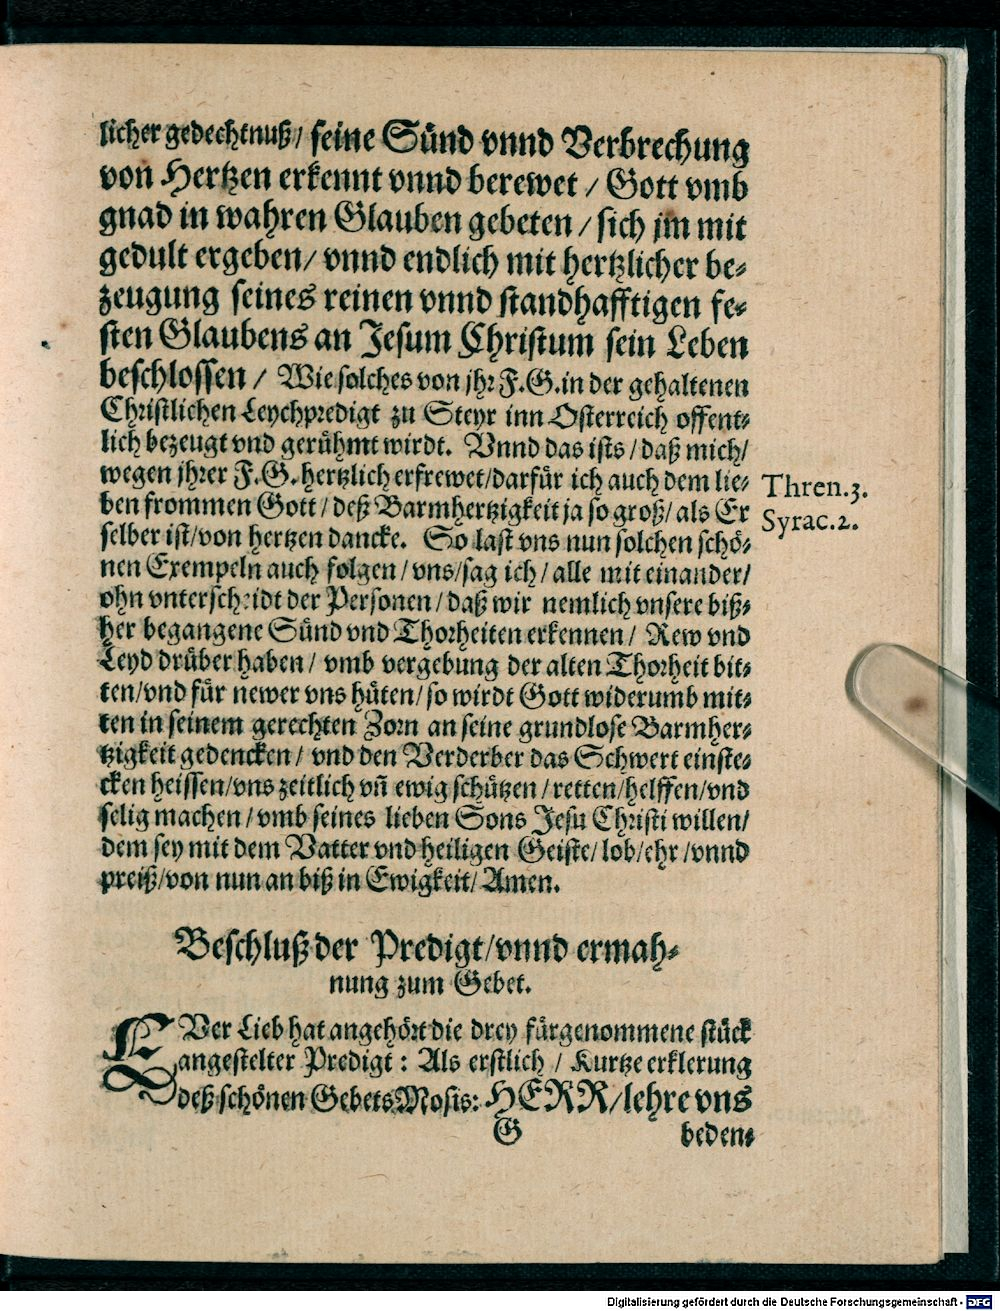 licher gedechtnuß/ seine Sünd vnnd Verbrechung
von Hertzen erkennt vnnd berewet / Gott vmb
gnad in wahren Glauben gebeten / sich jm mit
gedult ergeben/ vnnd endlich mit hertzlicher be⸗
zeugung seines reinen vnnd standhafftigen fe⸗
sten Glaubens an Jesum Christum sein Leben
beschlossen / Wie solches von jhr F.G. in der gehaltenen
Christlichen Leychpredigt zu Steyr inn Osterreich offent⸗
lich bezeugt vnd gerühmt wirdt. Vnnd das ists / daß mich/
wegen jhrer F.G. hertzlich erfrewet/darfür ich auch dem lie⸗
ben frommen Gott / deß Barmhertzigkeit ja so groß/ als Er
selber ist/von hertzen dancke. So last vns nun solchen schö⸗
nen Exempeln auch folgen / vns/sag ich / alle mit einander/
ohn vnterscheidt der Personen / daß wir nemlich vnsere biß⸗
her begangene Sünd vnd Thorheiten erkennen / Rew vnd
Leyd drüber haben / vmb vergebung der alten Thorheit bit⸗
ten/vnd für newer vns hüten/ so wirdt Gott widerumb mit⸗
ten in seinem gerechten Zorn an seine grundlose Barmher⸗
tzigkeit gedencken / vnd den Verderber das Schwert einste⸗
cken heissen/vns zeitlich vñ ewig schützen / retten/helffen/vnd
selig machen / vmb seines lieben Sons Jesu Christi willen/
dem sey mit dem Vatter vnd heiligen Geiste/ lob/ehr /vnnd
preiß/von nun an biß in Ewigkeit/ Amen.
Thren.3.
Syrac.2.
Beschluß der Predigt/vnnd ermah⸗
nung zum Gebet.
EVer Lieb hat angehört die drey fürgenommene stück
angestelter Predigt : Als erstlich / Kurtze erklerung
deß schönen Gebets Mosis: HERR/lehre vns
G
beden⸗
Digitalisierung gefördert durch die Deutsche Forschungsgemeinschaft - DFG